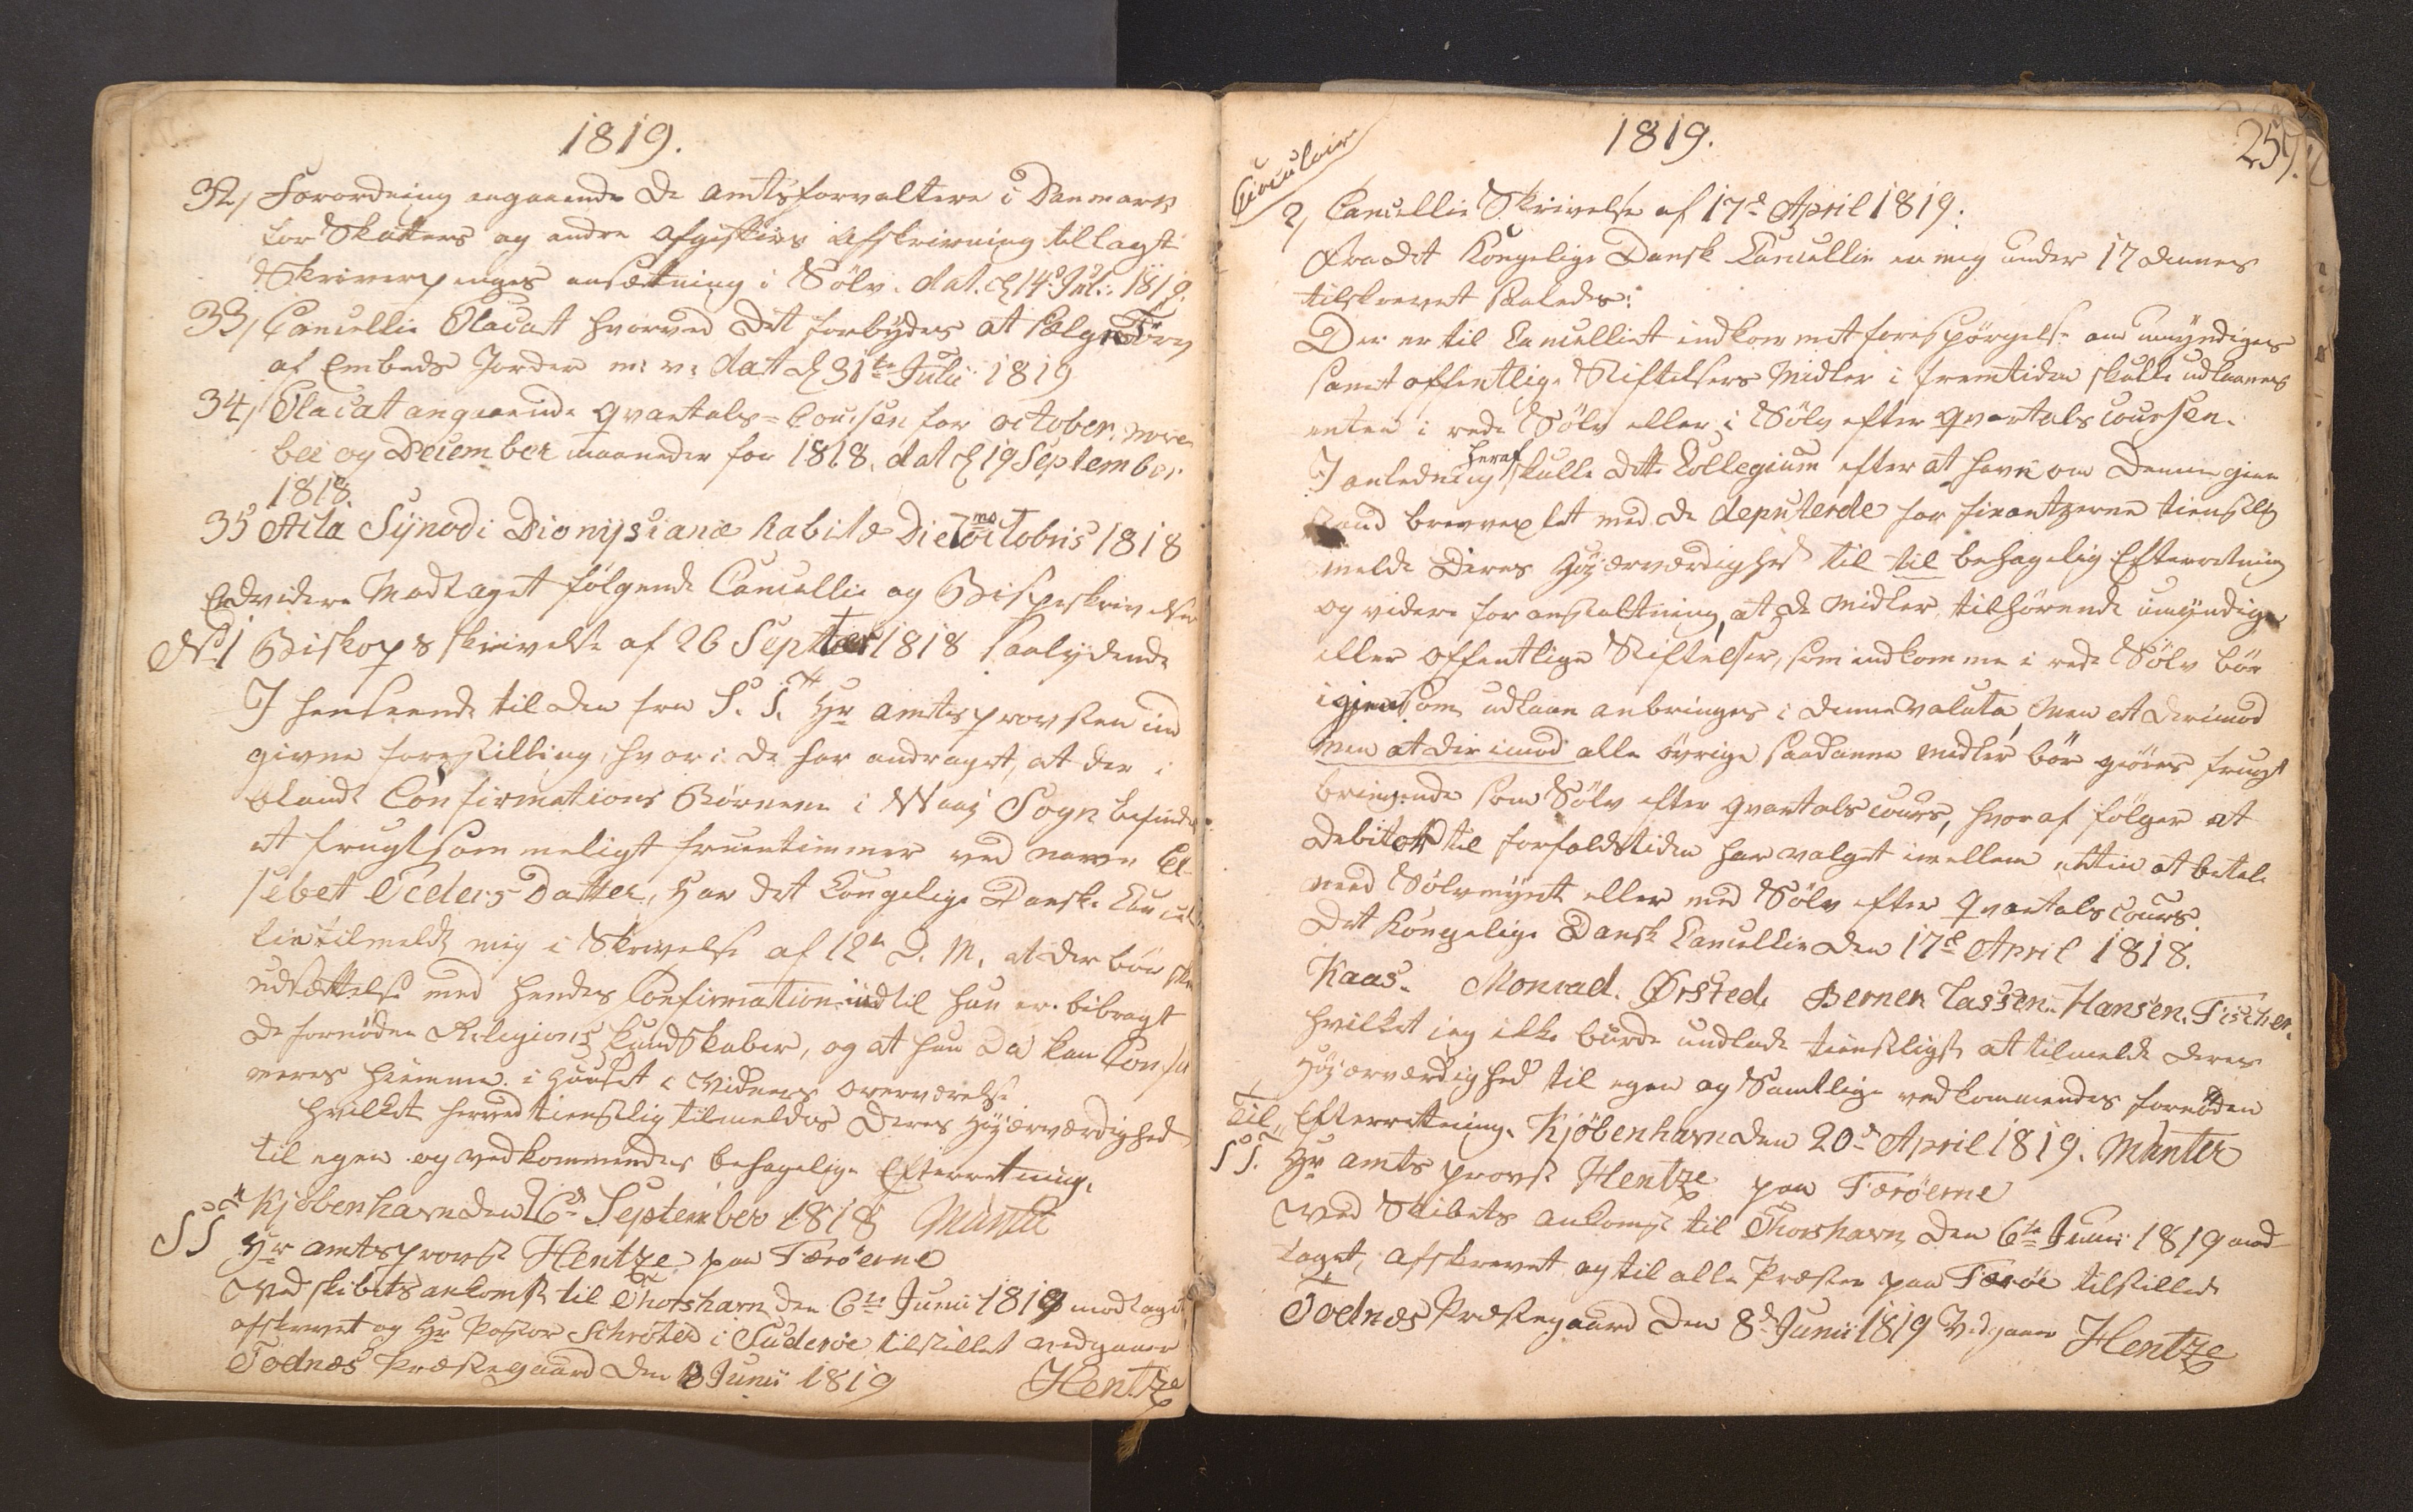 1819.
32, Forordning angaaende de Amtsforvaltere i Danmark
for Skatters og andre Afgifters Afskrivning tillagte
Skriverpenges ansættning i Sölv. dat. d 14 Jul. 1819.
33, Cancellie Placat hvorved det forbydes at sælge Törv
af Embeds Jorder m: v: dat d 31te Julii 1819
34, Placat angaaende Qvartals-Coursen for October, Novem
ber og December maaneder for 1818. dat d 19 September
1818.
35 Acta Synodi Dionysianæ habitæ Die 7mo octobris 1818
Endvidere Modtaget fölgende Cancellie og Bispeskrivelser
No 1 Biskops skrivelse af 26 Septber 1818 saalydende
I henseende til den fra S. T. Hr Amtsprovsten ind
givne forestilling, hvori de har andraget, at der i
blandt Confirmations Börnene i Waaj Sogn befindes
et frugtsommeligt fruentimmer ved navn El-
sebet Peders Datter, har det Kongelige Danske Cancel
lie tilmeldt mig i Skrivelse af 12te D. M. at der bör skee
udsættelse med hendes Confirmation indtil hun er bibragt
de fornödne Religions Kundskaber, og at hun da kan Confir
meres hiemme i Huuset i Vidners overværelse
hvilket herved tienstlig tilmeldes Deres Höjærværdighed
til egen og vedkommendes behagelige Efterretning.
Kjöbenhavn den 26de September 1818 Münter
S T Hr Amtsprovst Hentze paa Færöerne
Ved skibets ankomst til Thorshavn den 6te Junii 1819 modtaget,
afskrevet og Hr Pastor Schröter i Suderöe tilstillet vedgaaer
Todnæs Præstegaard den 8 Junii 1819 Hentze
1819. 259.
Circulair
2, Cancellie Skrivelse af 17d April 1819.
Fra det Kongelige Danske Cancellie er mig under 17 dennes
tilskrevet saaledes:
Der er til Cancelliet indkommet forespörgelse om umyndiges
samt offentlige Stiftelsers Midler i fremtiden skulle udlaanes
enten i rede Sölv eller i Sölv efter Qvartals coursen.
I anledning heraf skulle dette Collegium efter at have om denne gien
stand brevvexlet med de deputerede for finantzerne tienstlig
melde Deres Höjærværdighed til til behagelig Efterretning
og videre foranstaltning, at de midler tilhörende umyndige
eller offentlige Stiftelser, som indkomme i rede Sölv bör
igjen som udlaan anbringes i denne Valuta, Men at derimod
men at derimod alle övrige saadanne midler bör giöres frugt
bringende som Sölv efter qvartals cours, hvoraf fölger at
Debitor til forfaldstiden har valget imellem enten at betale
med Sölvmynt eller med Sölv efter Qvartals cours.
Det Kongelige Danske Cancellie den 17d April 1818.
Kaas. Monrad. Ørsted. Berner. Lassen. Hansen. Fischer.
hvilket jeg ikke burde undlade tienstligst at tilmelde Deres
Höjærværdighed til egen og Samtlige vedkommendes fornöden
Efterretning. Kjöbenhavn den 20de April 1819. Münter
Til,
S T. Hr Amts provst Hentze paa Færöerne
Ved Skibets ankomst til Thorshavn den 6te Junii 1819 mod-
taget, afskrevet og til alle Præster paa Færöe tilstillet
Todnæs Præstegaard den 8d Junii 1819 Vedgaaer Hentze